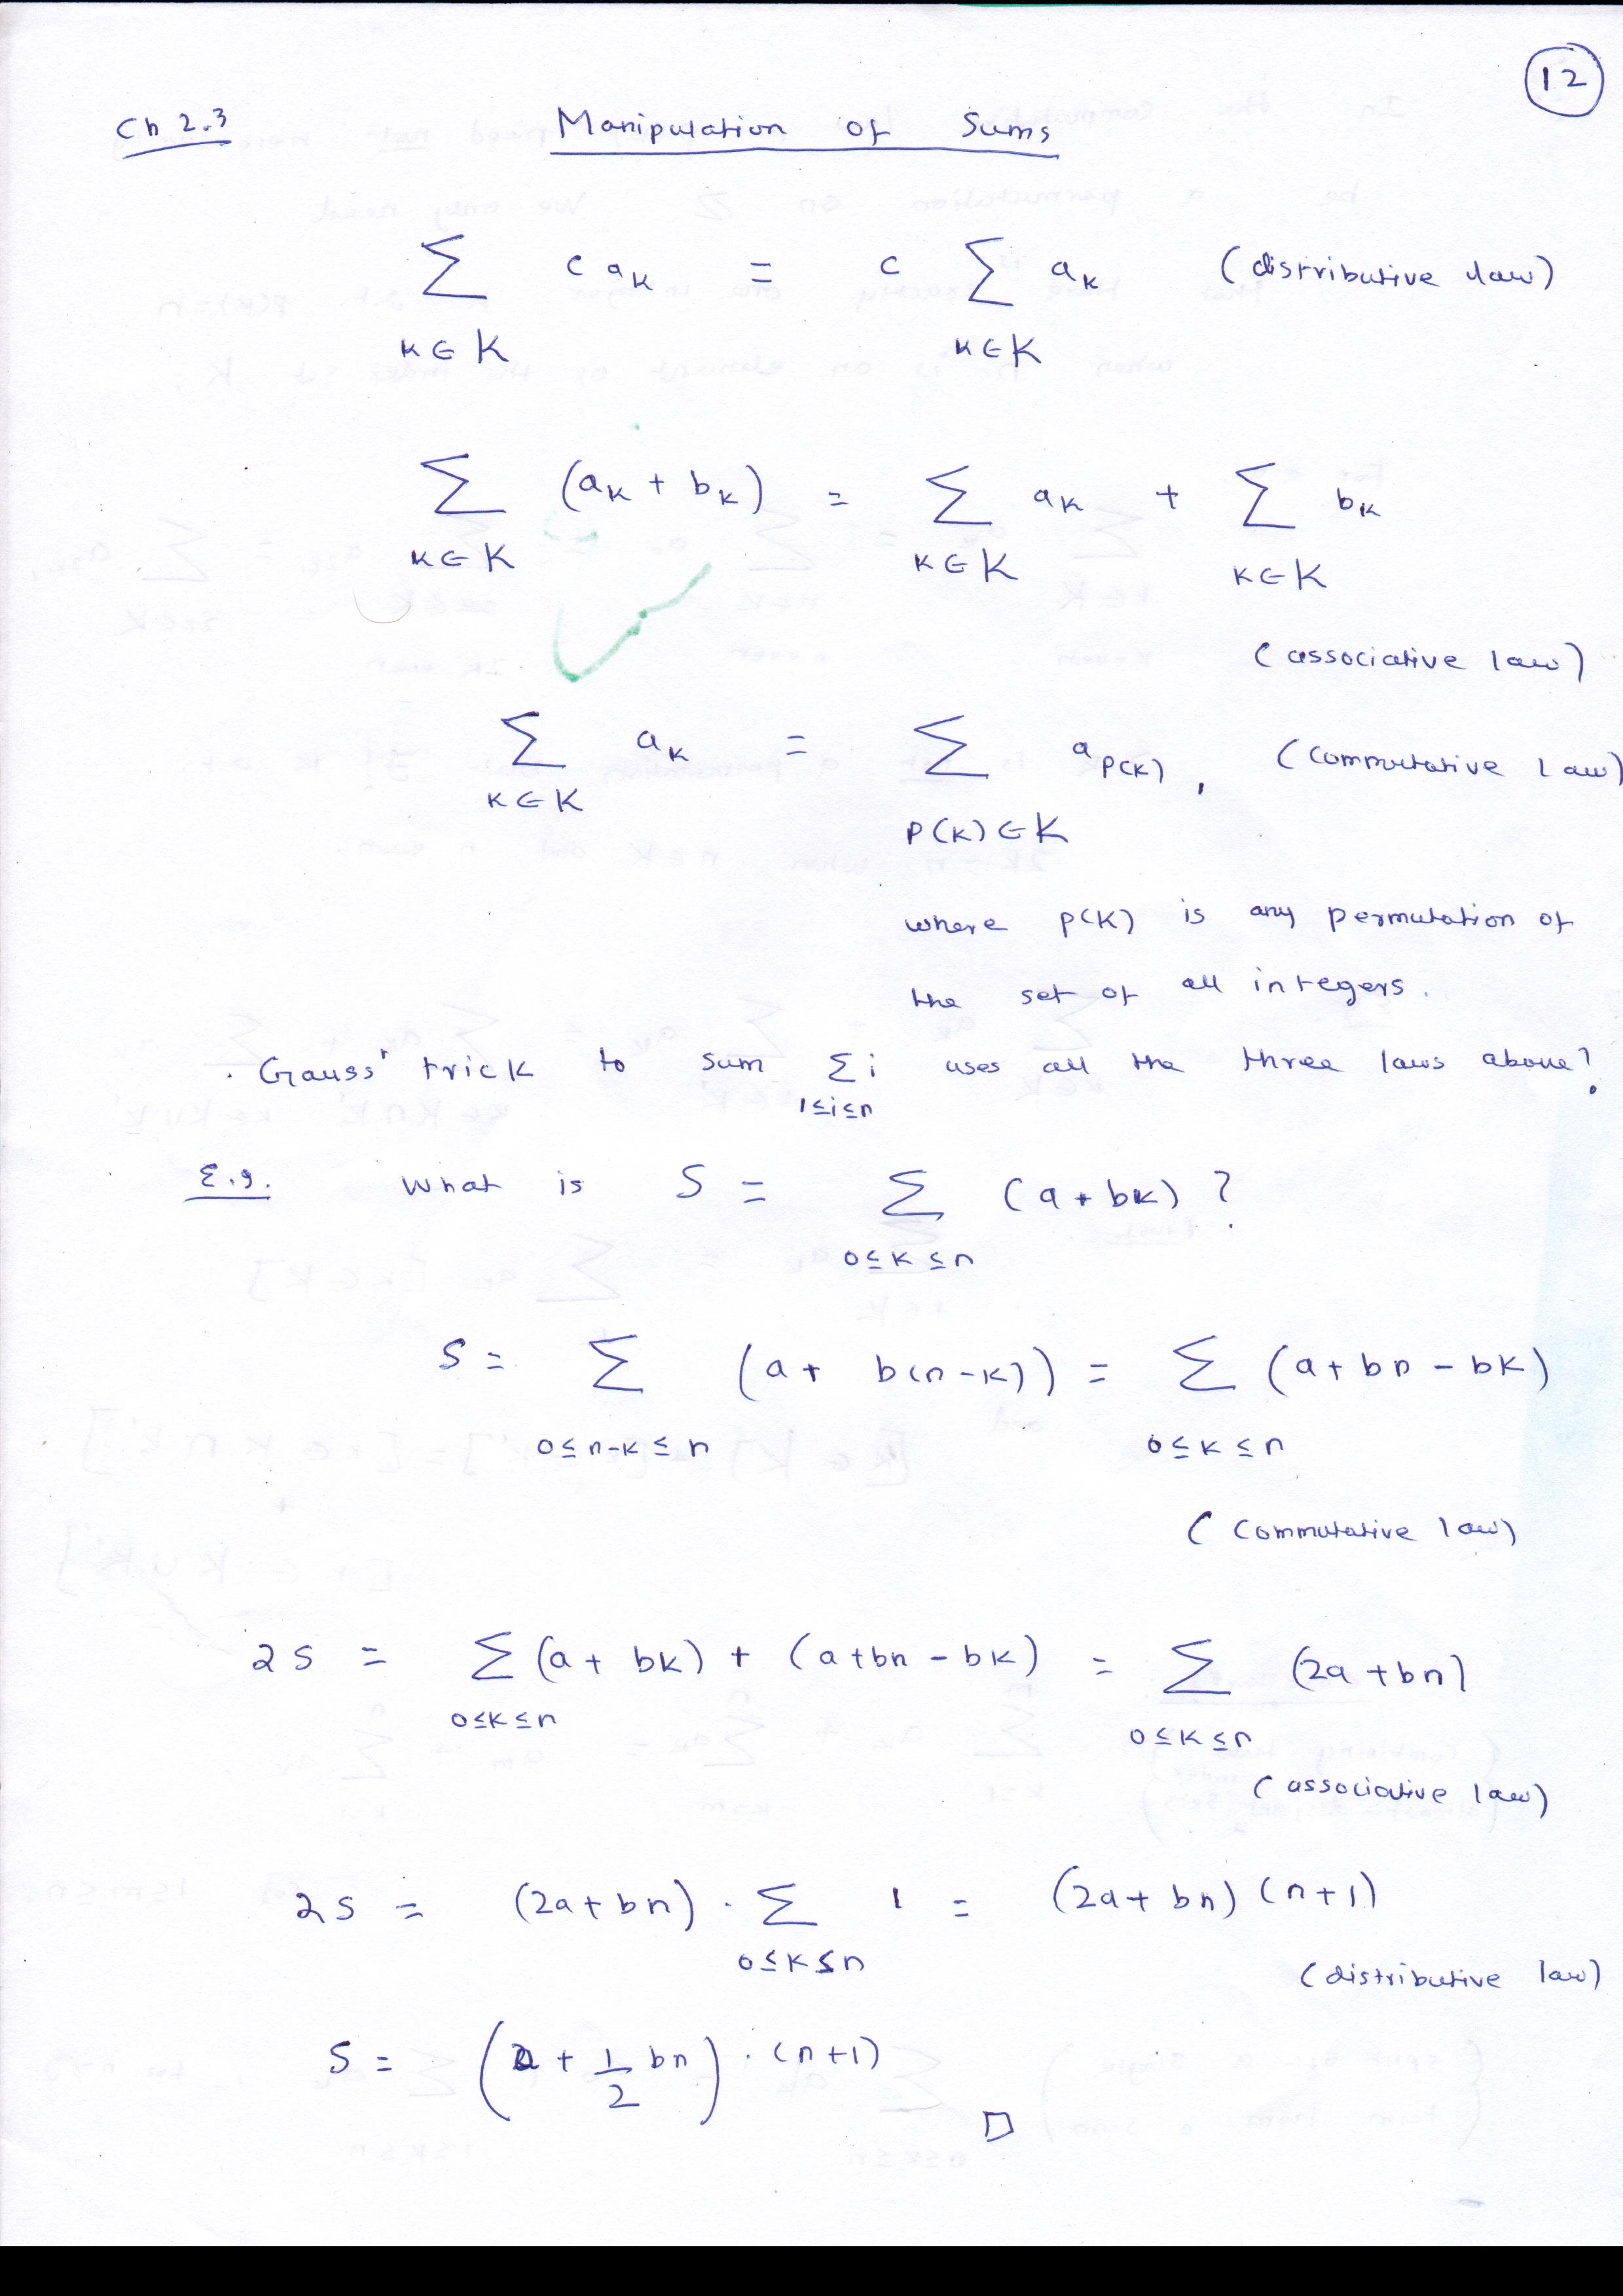 12
Ch 2.3 Manipulation of Sums
∑ c a_k = c ∑ a_k (distributive law)
k∈K k∈K
∑ (a_k + b_k) = ∑ a_k + ∑ b_k
k∈K k∈K k∈K
(associative law)
∑ a_k = ∑ a_p(k), (commutative law)
k∈K p(k)∈K
where p(k) is any permutation of
the set of all integers.
. Gauss' trick to sum ∑ i uses all the three laws above!
1≤i≤n
E.g. What is S = ∑ (a + bk) ?
0≤k≤n
S = ∑ (a + b(n-k)) = ∑ (a + bn - bk)
0≤n-k≤n 0≤k≤n
(commutative law)
2S = ∑ (a + bk) + (a+bn - bk) = ∑ (2a + bn)
0≤k≤n 0≤k≤n
(associative law)
2S = (2a + bn) · ∑ 1 = (2a + bn) (n+1)
0≤k≤n
(distributive law)
S = (a + 1/2 bn) · (n+1)
□